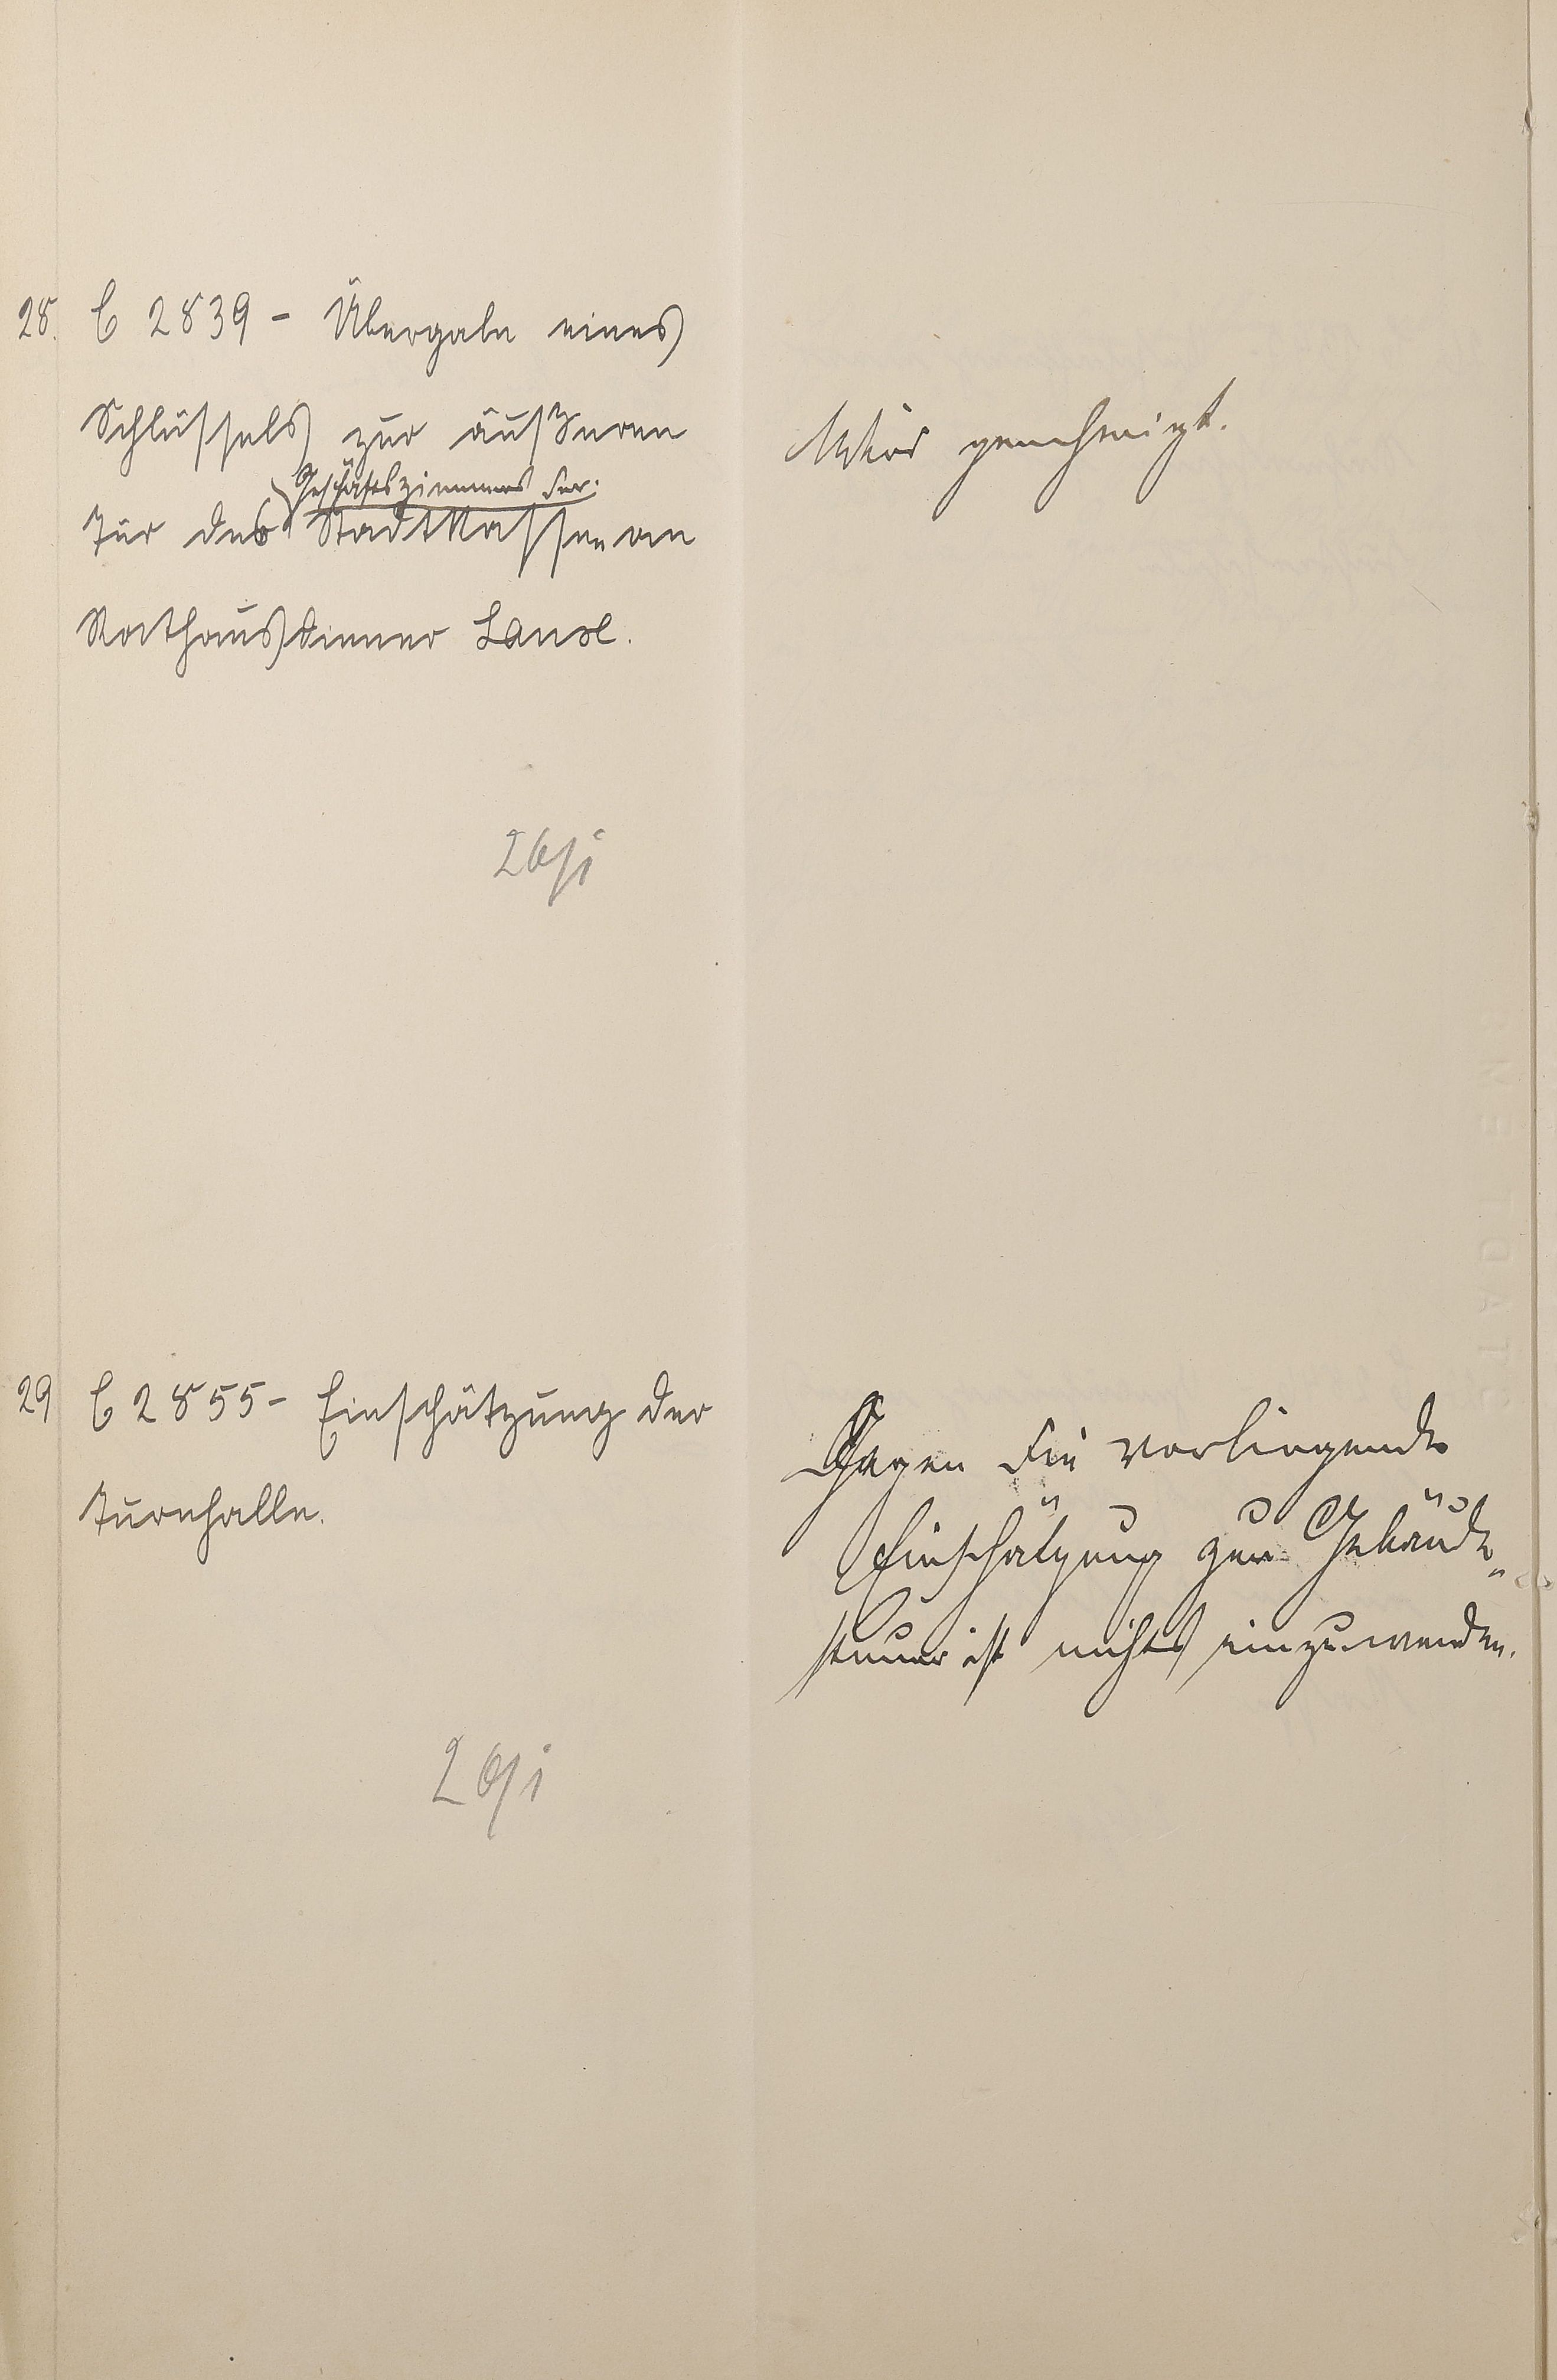 28. E 2839 - Übergabe eines
Schlüssels zur äußeren
Geschäftszimmers der
Tür des Stadtkasse an
Rathausdiener
Wird genehmigt.
26/1
29 E 2855 - Einschätzung der
Turnhalle.
Gegen die vorliegende
Einschätzung zur Gebäude„
steuer ist nichts einzuwenden.
26/1